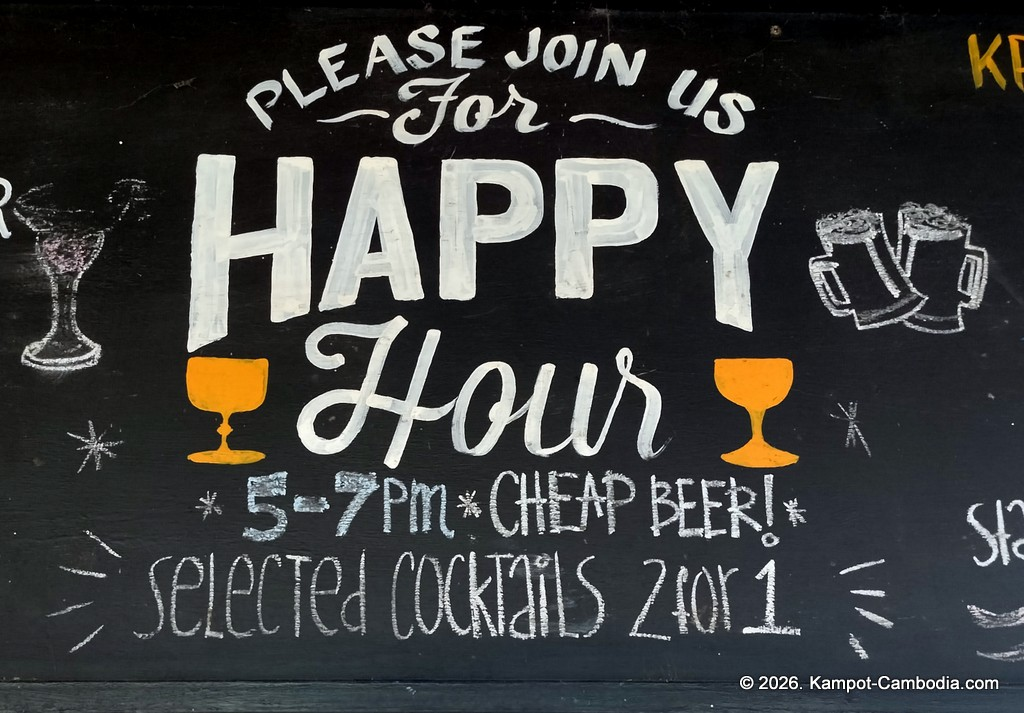 PLEASE JOIN US
For
HAPPY
Hour
5-7PM * CHEAP BEER! *
Selected COCKTAILS 2 for 1
© 2026. Kampot-Cambodia.com